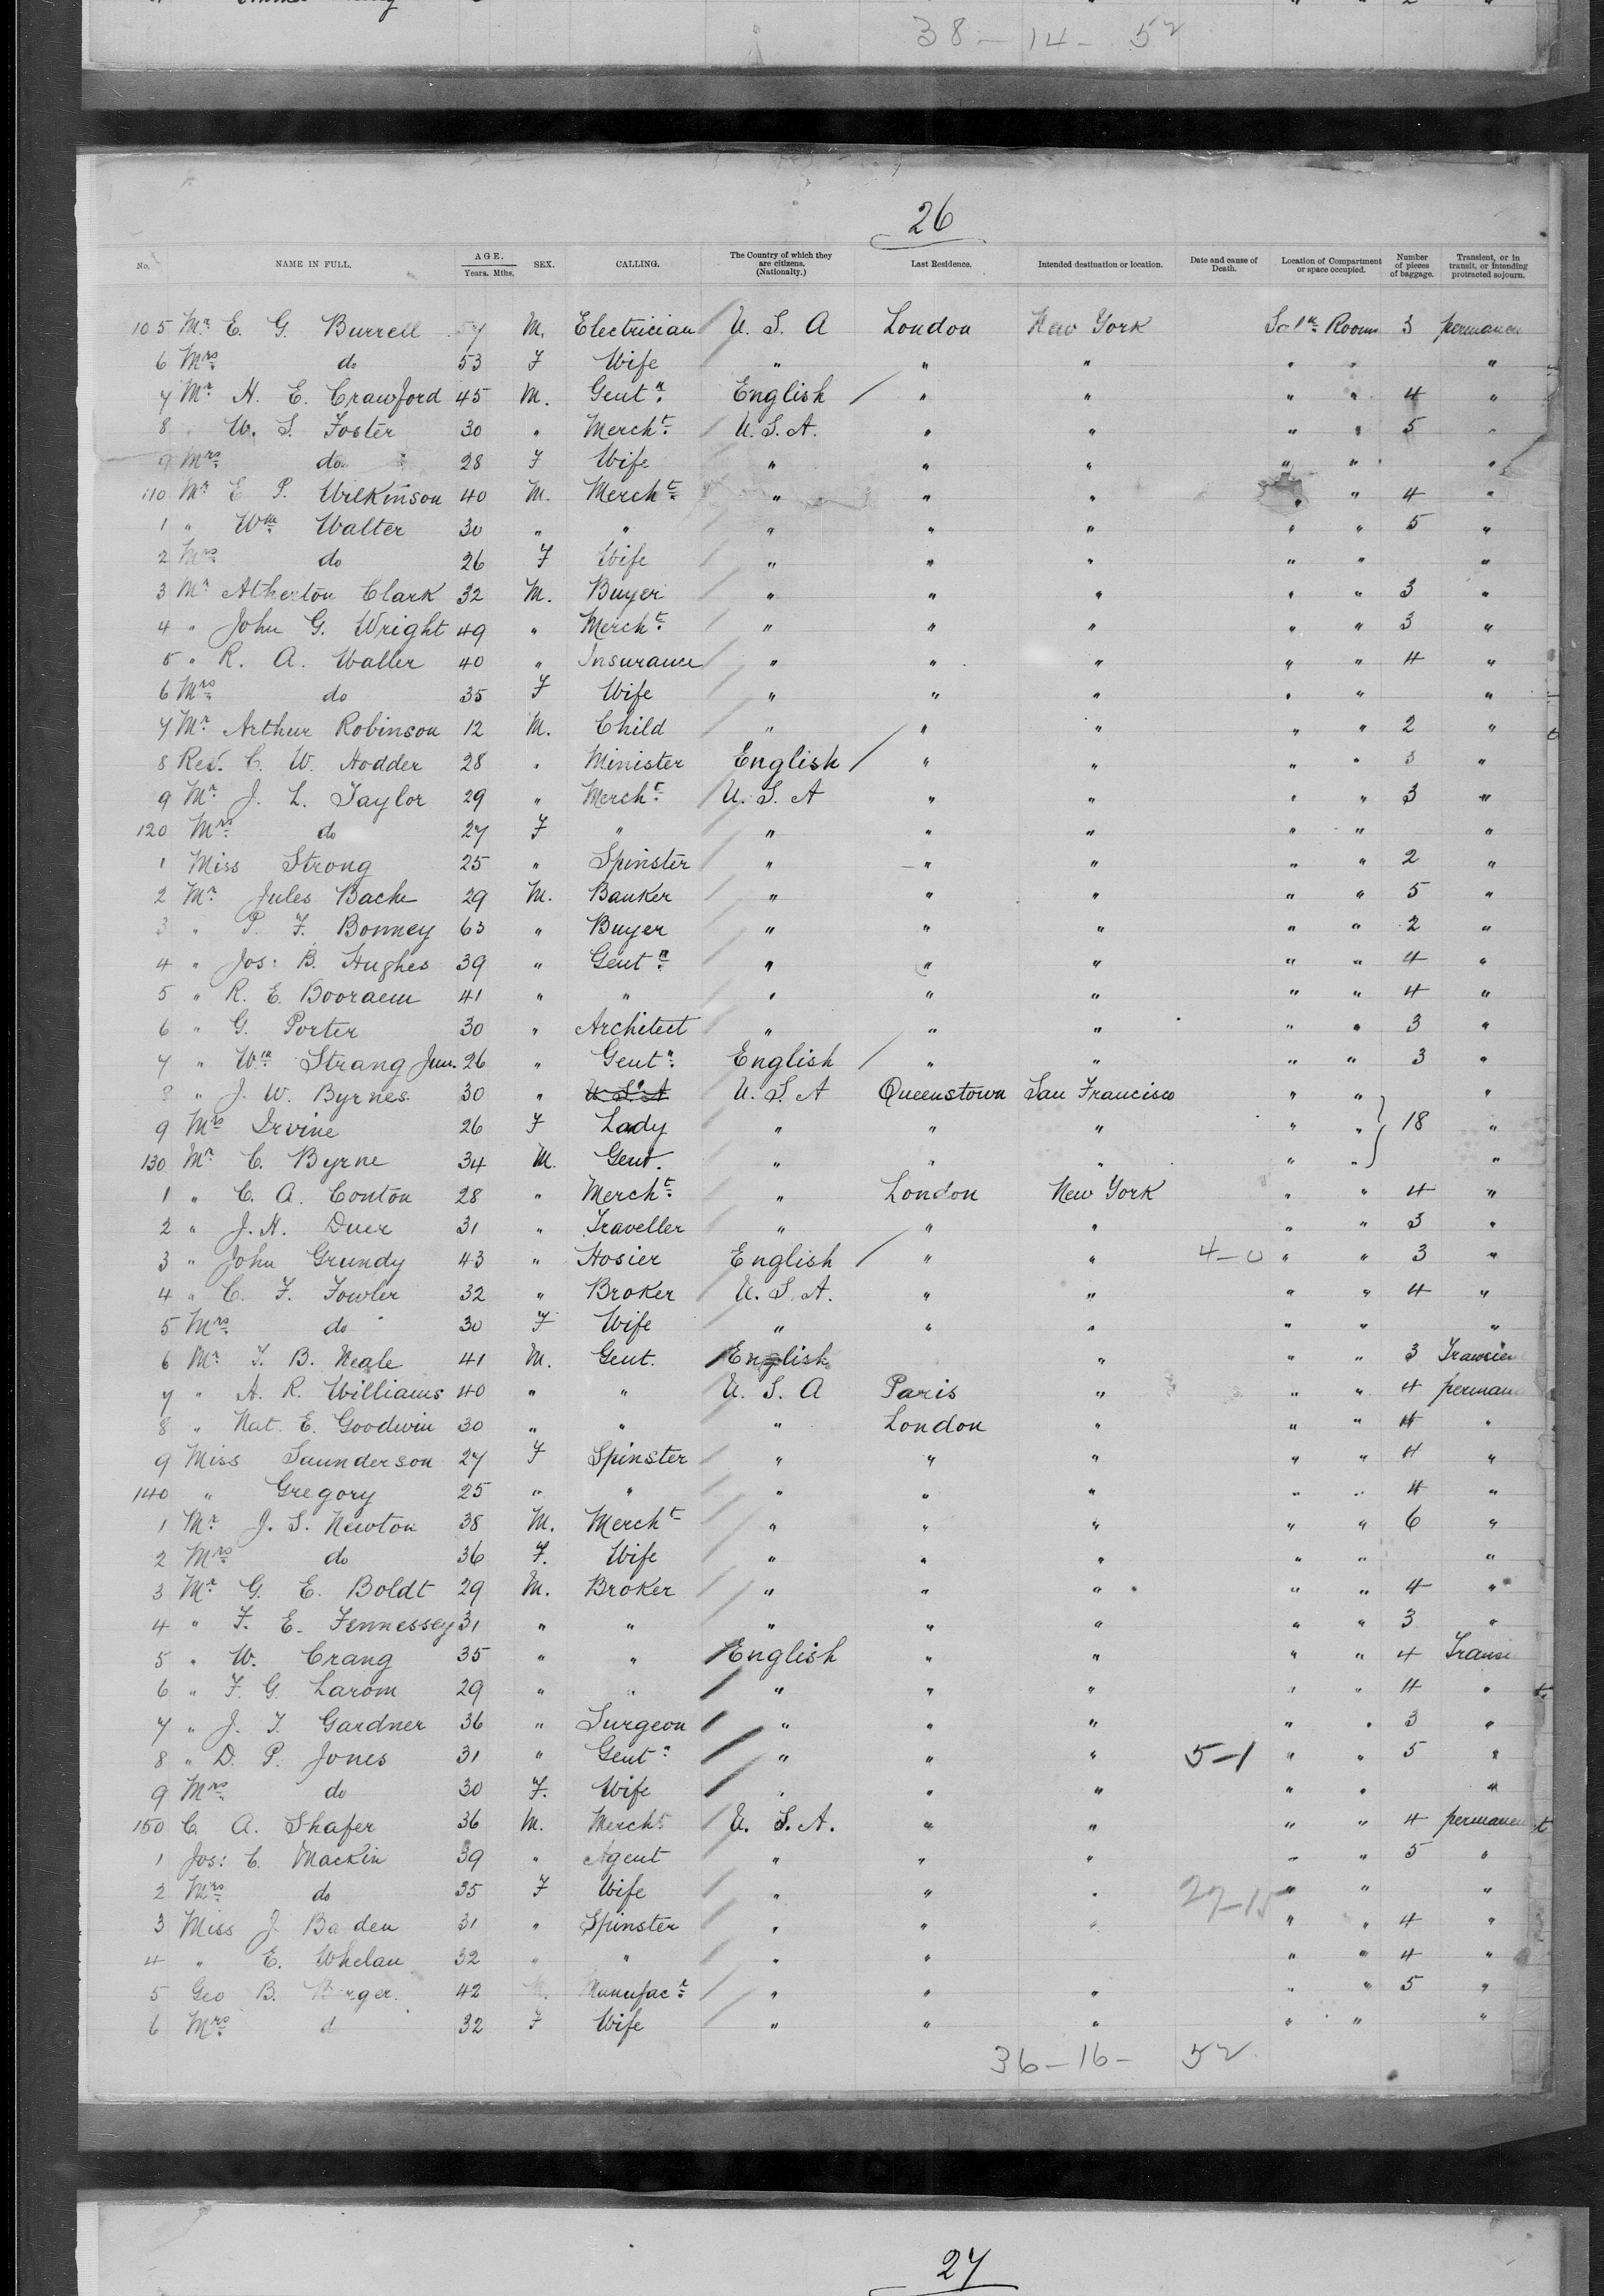 38 - 14 - 52
26
No. NAME IN FULL. AGE. Years. Mths. SEX. CALLING. The Country of which they are citizens. (Nationalty.) Last Residence. Intended destination or location. Date and cause of Death. Location of Compartment or space occupied. Number of pieces of baggage. Transient, or in transit, or intending protracted sojourn.
105 Mr E. G. Burrell 57 M. Electrician U. S. A London New York Saln Room 3 permanen
6 Mrs do 53 F Wife " " " " " "
7 Mr H. E. Crawford 45 M. Gentn English " " " " 4 "
8 " W. S. Foster 30 " Mercht U. S. A. " " " " 5 "
9 Mrs do 28 F Wife " " " " " "
110 Mr E P. Wilkinson 40 M. Mercht " " " " " 4 "
1 " Wm Walter 30 " " " " " " " 5 "
2 Mrs do 26 F Wife " " " " " "
3 Mr Atherton Clark 32 M. Buyer " " " " " 3 "
4 " John G. Wright 49 " Mercht " " " " " 3 "
5 " R. A. Waller 40 " Insurance " " " " " 4 "
6 Mrs do 35 F Wife " " " " " "
7 Mr Arthur Robinson 12 M. Child " " " " " 2 "
8 Rev. C. W. Hodder 28 " Minister English " " " " 3 "
9 Mr J. L. Taylor 29 " Mercht U. S. A " " " " 3 "
120 Mrs do 27 F " " " " " " "
1 Miss Strong 25 " Spinster " " " " " 2 "
2 Mr Jules Bache 29 M. Banker " " " " " 5 "
3 " P. F. Bonney 63 " Buyer " " " " " 2 "
4 " Jos: B. Hughes 39 " Gentn " " " " " 4 "
5 " R. E. Booraem 41 " " " " " " " 4 "
6 " G. Porter 30 " Architect " " " " " 3 "
7 " Wm Strang Jun. 26 " Gentn English " " " " 3 "
8 " J. W. Byrnes 30 " U. S. A U. S. A Queenstown San Francisco " " "
9 Mrs Irvine 26 F Lady " " " " " 18 "
130 Mr C. Byrne 34 M. Gent. " " " " " "
1 " C. A. Conton 28 " Mercht " London New York " " 4 "
2 " J. H. Duer 31 " Traveller " " " " " 3 "
3 " John Grundy 43 " Hosier English " " 4-0 " " 3 "
4 " C. F. Fowler 32 " Broker U. S. A. " " " " 4 "
5 Mrs do 30 F Wife " " " " " "
6 Mr T. B. Neale 41 M. Gent. English " " " 3 Transien
7 " H. R. Williams 40 " " U. S. A Paris " " " 4 perman
8 " Nat. E. Goodwin 30 " " " London " " " 4 "
9 Miss Saunderson 27 F Spinster " " " " " 4 "
140 " Gregory 25 " " " " " " " 4 "
1 Mr J. S. Newton 38 M. Mercht " " " " " 6 "
2 Mrs do 36 F. Wife " " " " " "
3 Mr G. E. Boldt 29 M. Broker " " " " " 4 "
4 " F. E. Fennessey 31 " " " " " " " 3 "
5 " W. Crang 35 " " English " " " " 4 Transi
6 " F. G. Larom 29 " " " " " " " 4 "
7 " J. T. Gardner 36 " Surgeon " " " " " 3 "
8 " D. P. Jones 31 " Gentn " " " 5-1 " " 5 "
9 Mrs do 30 F. Wife " " " " " "
150 C. A. Shafer 36 M. Mercht U. S. A. " " " " 4 permanent
1 Jos: C. Mackin 39 " Agent " " " " " 5 "
2 Mrs do 35 F Wife " " " 27-15 " " "
3 Miss J Ba den 31 " Spinster " " " " " 4 "
4 " E. Whelan 32 " " " " " " 4 "
5 Geo B. 42 M. Manufact " " " " " 5 "
6 Mrs d 32 F Wife " " " " " "
36 - 16 - 52
27